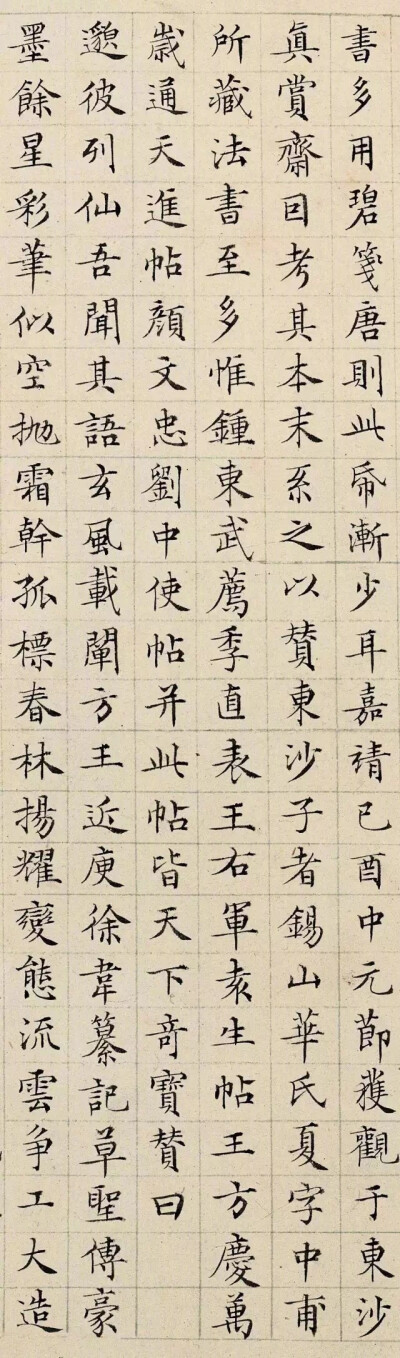 書多用碧箋唐則此帋漸少耳嘉靖己酉中元節獲觀于東沙
真賞齋因考其本末系之以贊東沙子者錫山華氏夏字中甫
所藏法書至多惟鍾東武薦季直表王右軍袁生帖王方慶萬
嵗通天進帖顏文忠劉中使帖并此帖皆天下奇寶贊曰
邈彼列仙吾聞其語玄風載闡方王近庚徐韋纂記草聖傳豪
墨餘星彩筆似空拋霜幹孤標春林揚耀變態流雲爭工大造